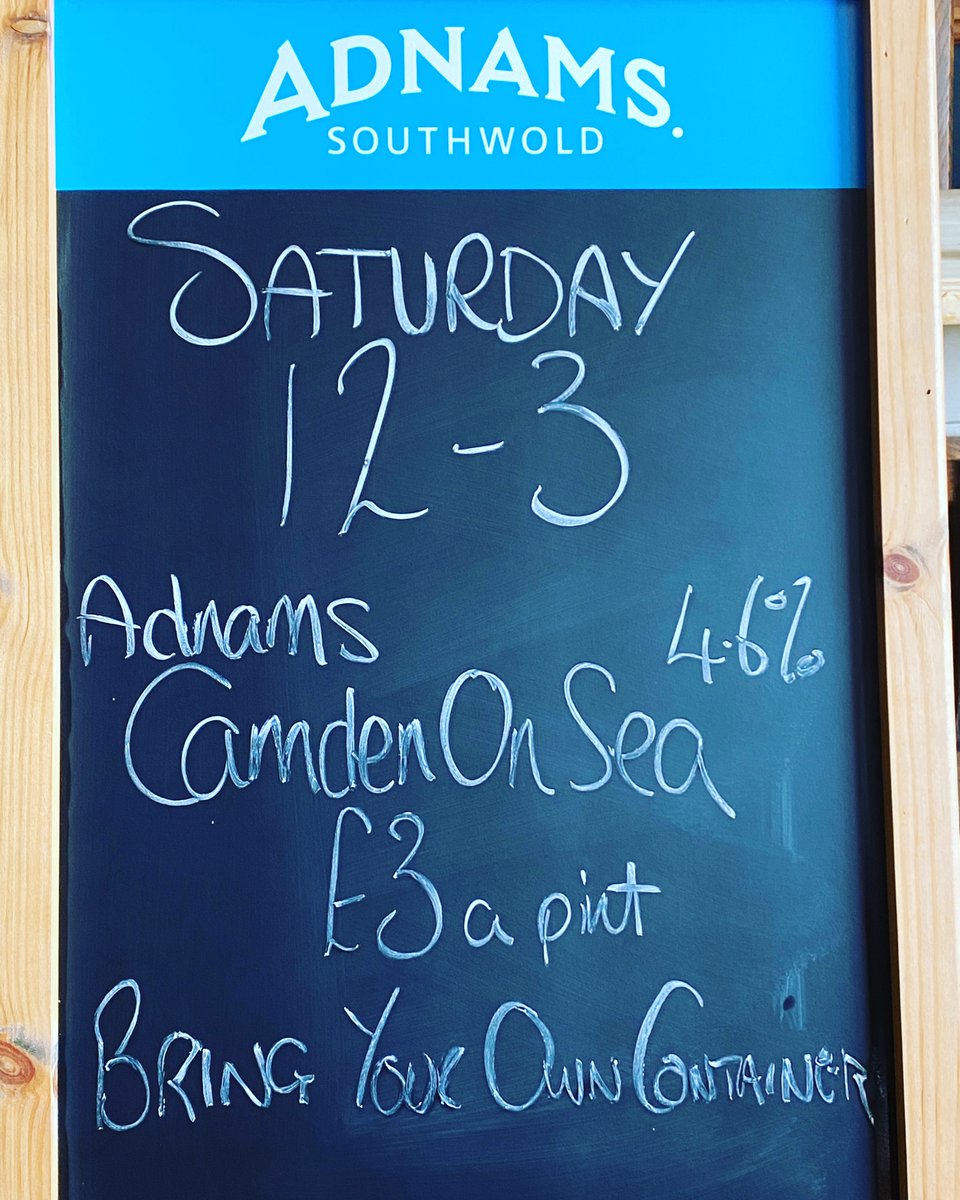 ADNAMS.
SOUTHWOLD
SATURDAY
12-3
Adnams 4.6%
Camden On Sea
£3 a pint
BRING YOUR OWN CONTAINER